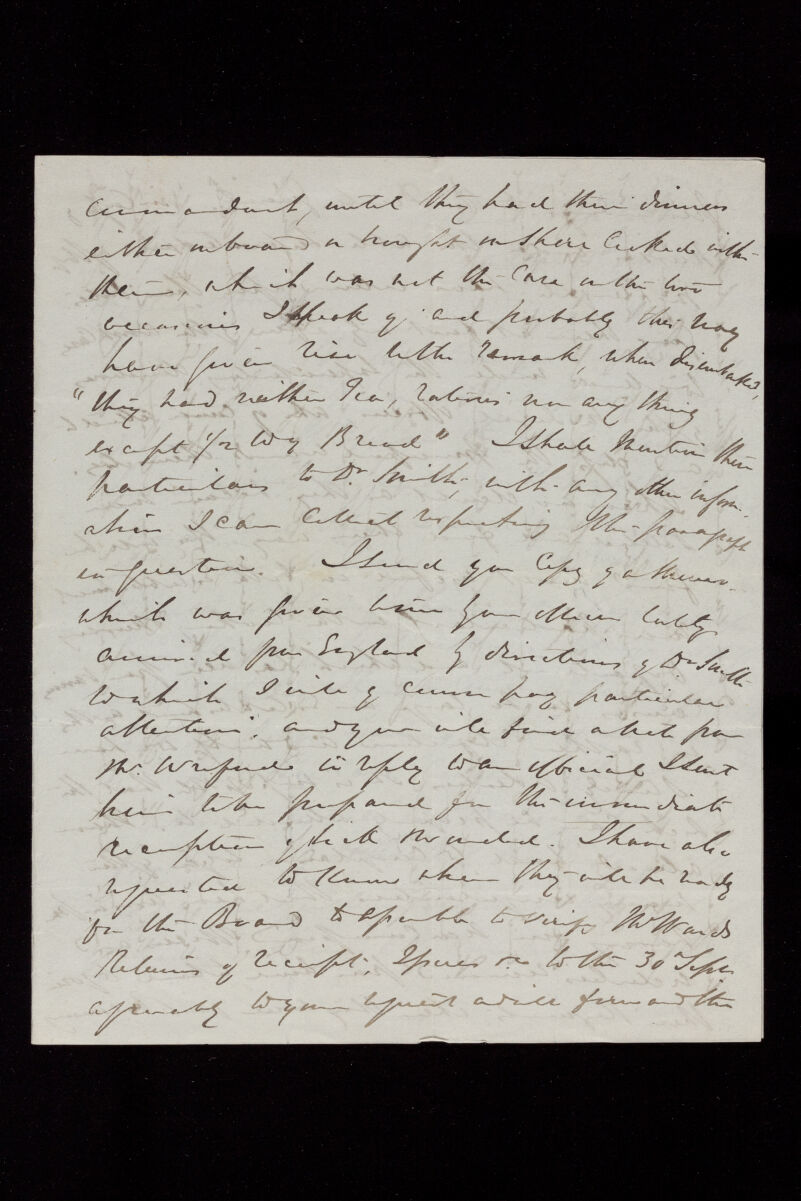 Commandant, until they had their dinners
either onboard or brought on Shore Cooked with
them, which was not the Case on the two
occasions I speak of and probably this may
have given rise to the remark, when disembarked,
"they had neither Tea, rations nor any thing
except 1/2 lb of Bread" I shall mention these
particulars to Dr Smith, with any other inform-
ation I can Collect respecting the paragraph
in question. I send you Copy of a Memo.
which was given from your office lately
arrived from England by directions of Dr Smith
to which I will of course pay particular
attention, and you will find a letter from
Mr. in reply to an official I sent
him to be prepared for the immediate
reception of sick & wounded. I have also
requested to know when they will be ready
for the Board to assemble to verify Mr Wards
Returns of receipt, Issues &c to the 30th Septr
agreeably to your request and will forward the